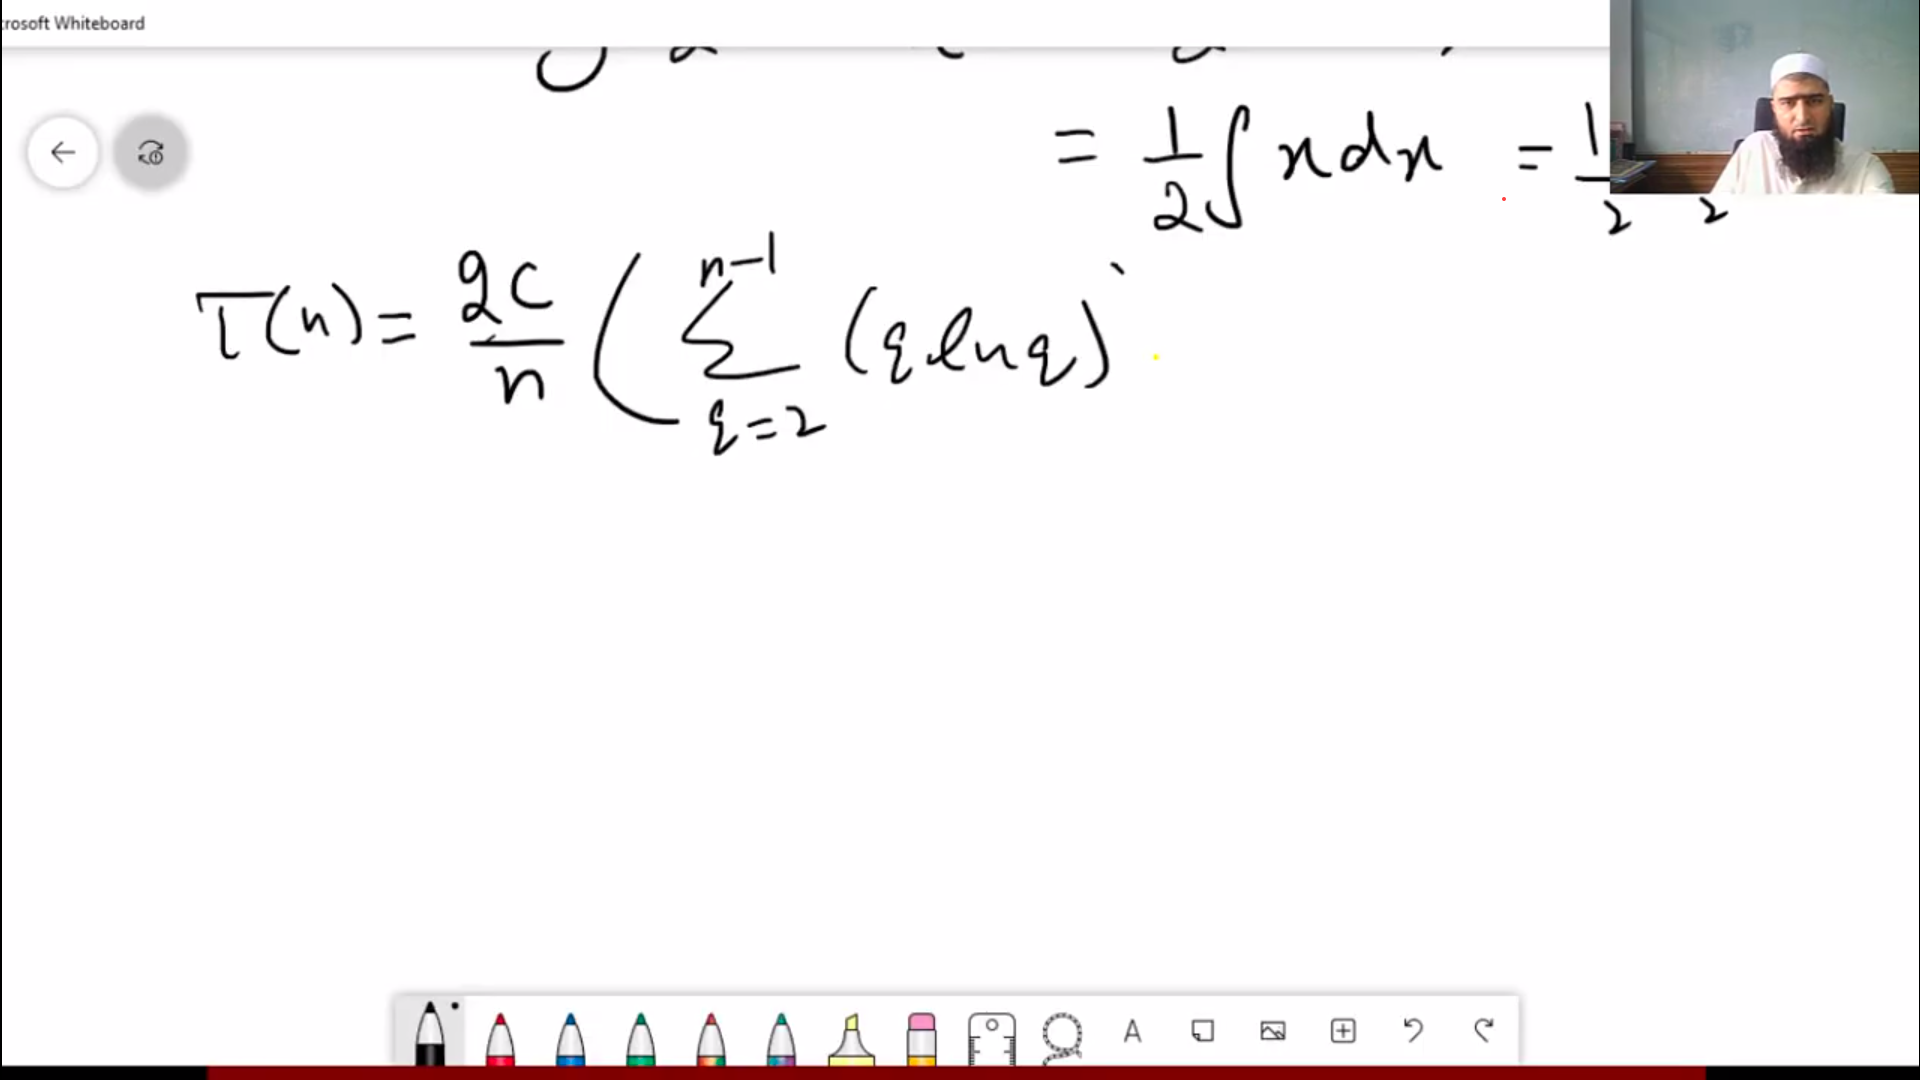 rosoft Whiteboard
= 1/2 ∫ x dx = 1/2 2
T(n) = 2c/n ( ∑_{q=2}^{n-1} (q ln q)
A